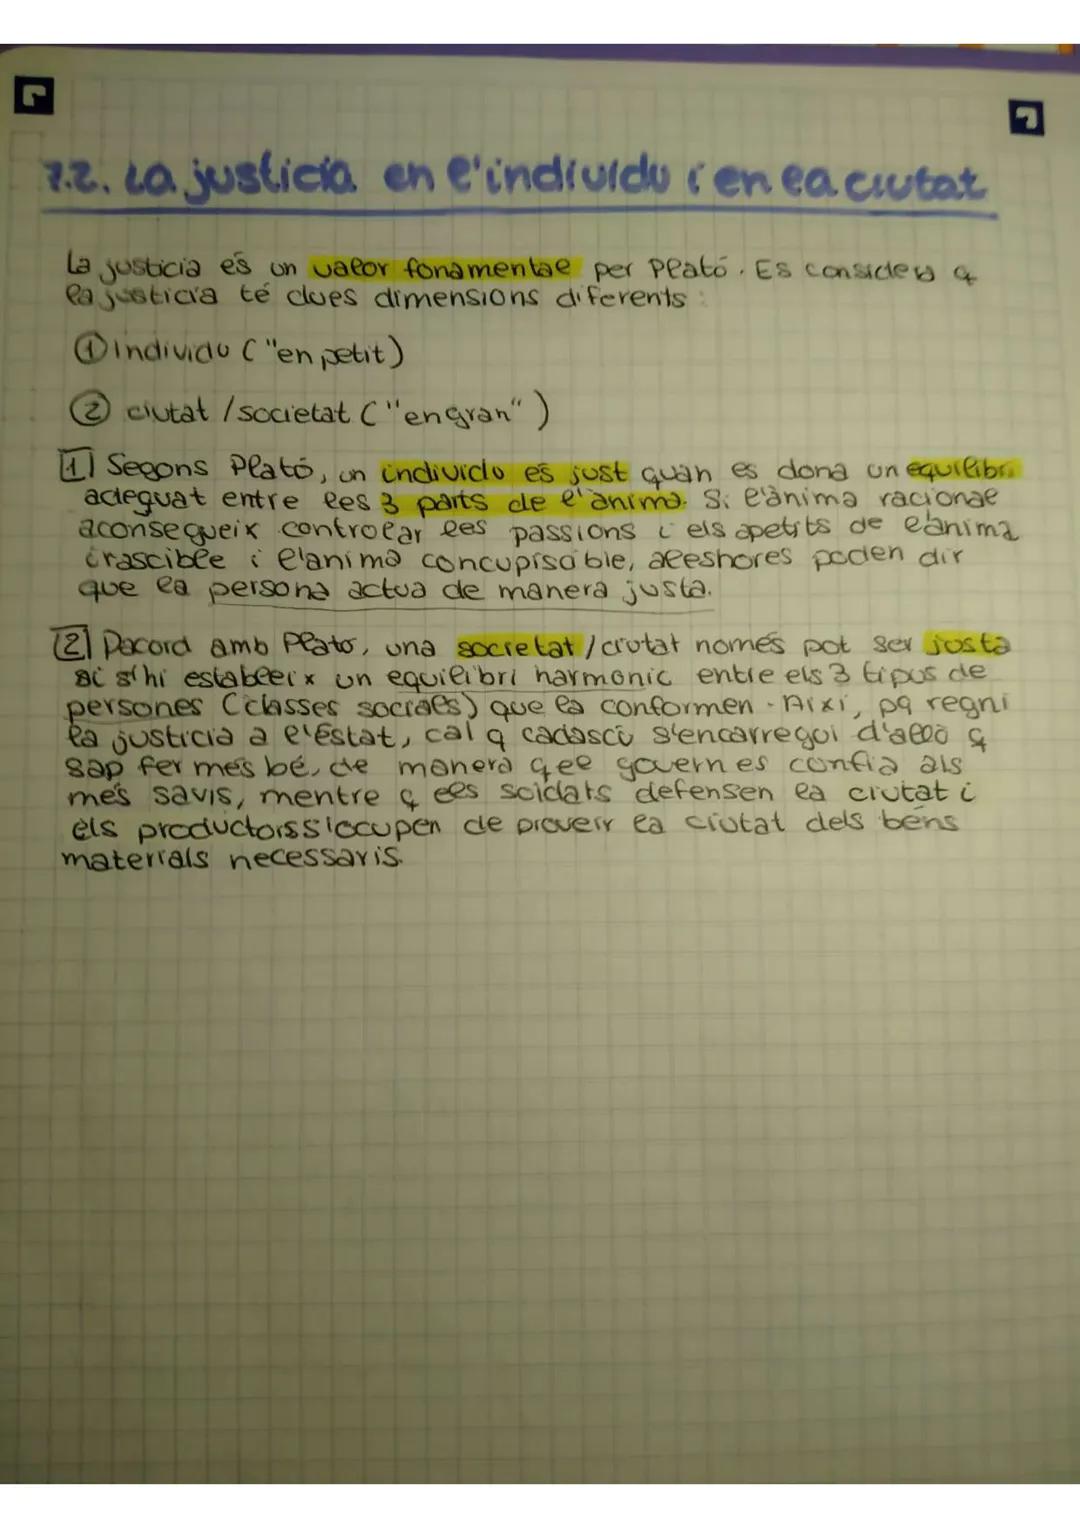 7.2. La justícia en l'individu i en la ciutat
La justícia és un valor fonamental per Plató. Es considera q
la justícia té dues dimensions diferents:
① individu ("en petit)
② ciutat / societat ("en gran")
1 Segons Plató, un individu és just quan es dona un equilibri
adequat entre les 3 parts de l'ànima. Si l'ànima racional
aconsegueix controlar les passions i els apetits de l'ànima
irascible i l'anima concupiscible, aleshores poden dir
que la persona actua de manera justa.
2 Dacord amb Plató, una societat / ciutat només pot ser justa
si s'hi estableix un equilibri harmonic entre els 3 tipus de
persones (classes socials) que la conformen. Aixi, pq regni
la justicia a l'Estat, cal q cadascú s'encarregui d'allò q
sap fer més bé, de manera qel govern es confia als
més savis, mentre q els soldats defensen la ciutat i
els productors s'occupen de proveir la ciutat dels béns
materials necessaris.